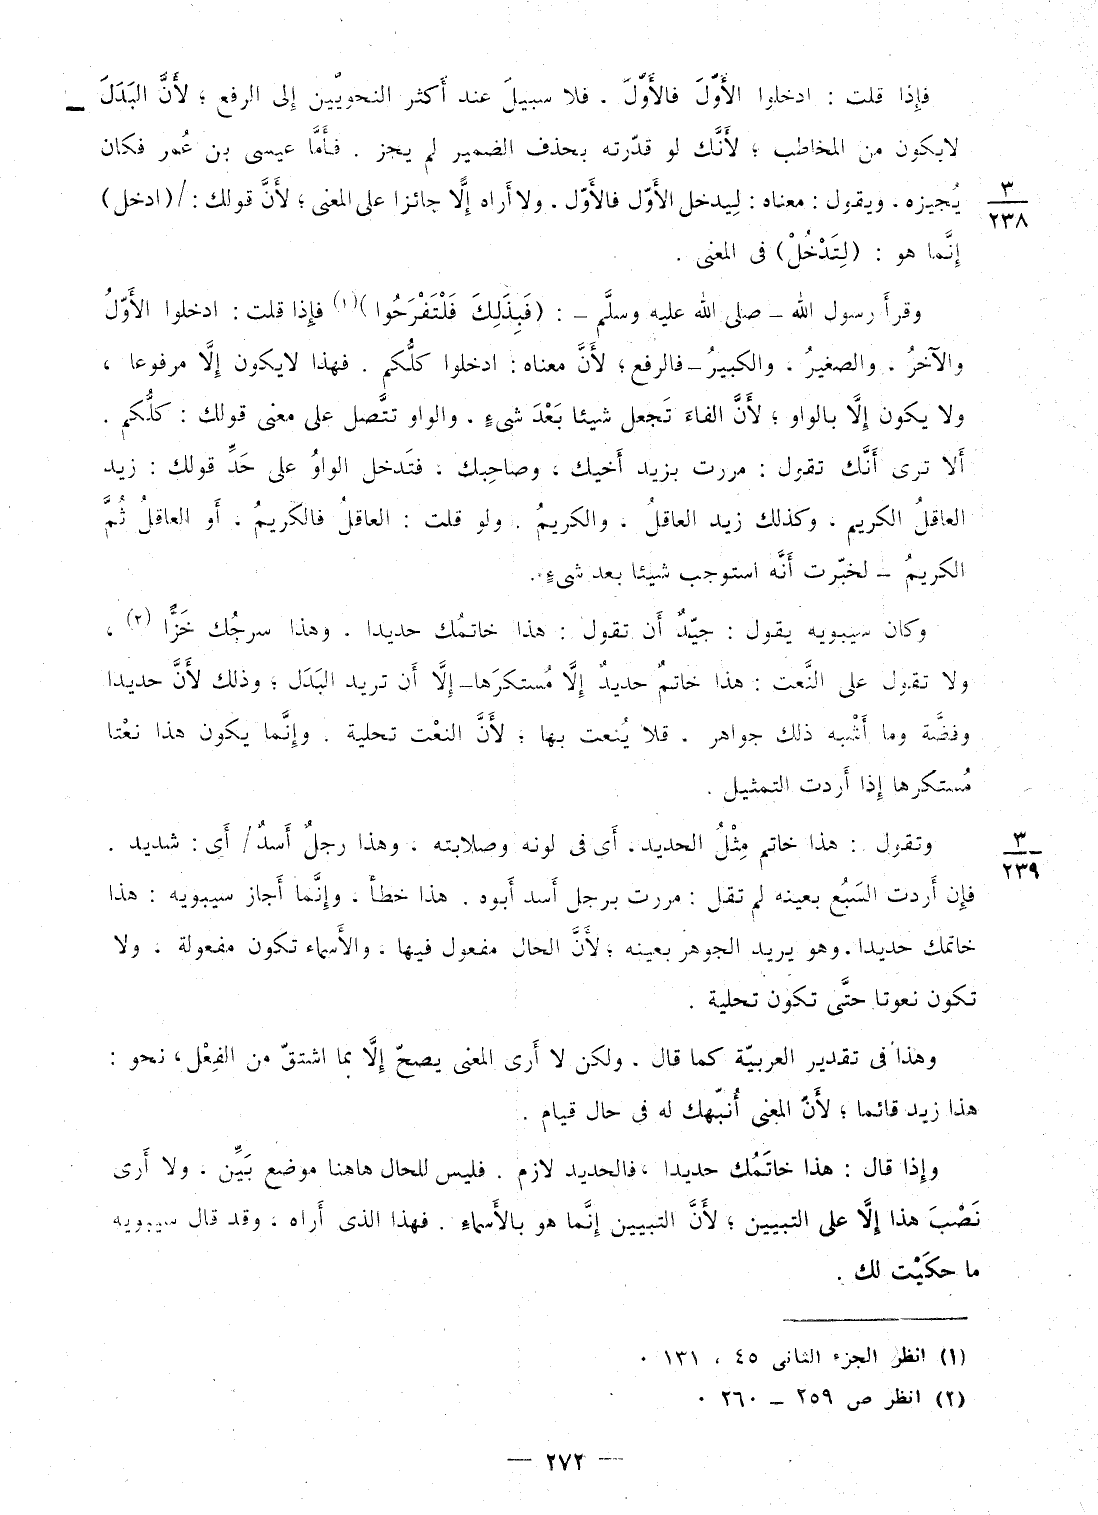 فإذا قلت : ادخلوا الأَوّلَ فالأَوّلَ . فلا سبيلَ عند أَكثر النحويّين إلى الرفع ؛ لأَنَّ البَدَلَ
لايكون من المخاطب ؛ لأَنَّك لو قدّرته بحذف الضمير لم يجز . فأَمَّا عيسى بن عُمر فكان
يُجيزه . ويقول : معناه : لِيدخل الأَوّل فالأَوّل . ولا أراه إلَّا جائزا على المعنى ؛ لأَنَّ قولك : /(ادخل)
٣
٢٣٨
إنَّما هو : (لِتَدْخُلْ) فى المعنى .
وقرأَ رسول الله ــ صلى الله عليه وسلَّم ــ : (فَبِذَلِكَ فَلْتَفْرَحُوا)(١) فإِذا قلت : ادخلوا الأَوّلُ
والآخرُ . والصغيرُ . والكبيرُ ــ فالرفع ؛ لأَنَّ معناه : ادخلوا كلُّكم . فهذا لايكون إلَّا مرفوعا ،
ولا يكون إلَّا بالواو ؛ لأَنَّ الفاءَ تَجعل شيئا بَعْدَ شىءٍ . والواو تتَّصل على معنى قولك : كلُّكم .
أَلا ترى أَنَّك تقول : مررت بزيد أَخيك ، وصاحِبك ، فتَدخل الواوُ على حَدِّ قولك : زيد
العاقلُ الكريم ، وكذلك زيد العاقلُ ، والكريمُ . ولو قلت : العاقلُ فالكريمُ ، أَو العاقلُ ثُمَّ
الكريمُ ــ لخبّرت أَنَّه استوجب شيئا بعد شىءٍ .
وكان سيبويه يقول : جيّدٌ أَن تقول : هذا خاتمُك حديدا . وهذا سرجُك خَزًّا (٢) ،
ولا تقول على النَّعت : هذا خاتمٌ حديدٌ إلَّا مُستكرَها ــ إلَّا أَن تريد البَدَل ؛ وذلك لأَنَّ حديدا
وفضَّة وما أَشْبه ذلك جواهر . فلا يُنعت بها ؛ لأَنَّ النعْت تحلية . وإنَّما يكون هذا نعْتا
مُستكرها إذا أَردت التمثيل .
وتقول : هذا خاتم مِثْلُ الحديد ، أَى فى لونه وصلابته . وهذا رجلٌ أَسدٌ / أَى : شديد .
٣
٢٣٩
فإن أَردت السَبُع بعينه لم تقل : مررت برجل أَسد أَبوه . هذا خطأ . وإنَّما أَجاز سيبويه : هذا
خاتمك حديدا . وهو يريد الجوهر بعينه ؛ لأَنَّ الحال مفعول فيها . والأَسماء تكون مفعولة . ولا
تكون نعوتا حتَّى تكون تحلية .
وهذا فى تقدير العربيّة كما قال . ولكن لا أَرى المعنى يصحّ إلَّا بما اشتقّ من الفِعْل ، نحو :
هذا زيد قائما ؛ لأَنَّ المعنى أُنبّهك له فى حال قيام .
وإذا قال : هذا خاتَمُك حديدا ، فالحديد لازم . فليس للحال هاهنا موضع بَيِّن . ولا أَرى
نَصْبَ هذا إلَّا على التبيين ؛ لأَنَّ التبيين إنَّما هو بالأَسماء . فهذا الذى أَراه ، وقد قال سيبويه
ما حكَيْت لك .
(١) انظر الجزء الثانى ٤٥ ، ١٣١ .
(٢) انظر ص ٢٥٩ ــ ٢٦٠ .
— ٢٧٢ —